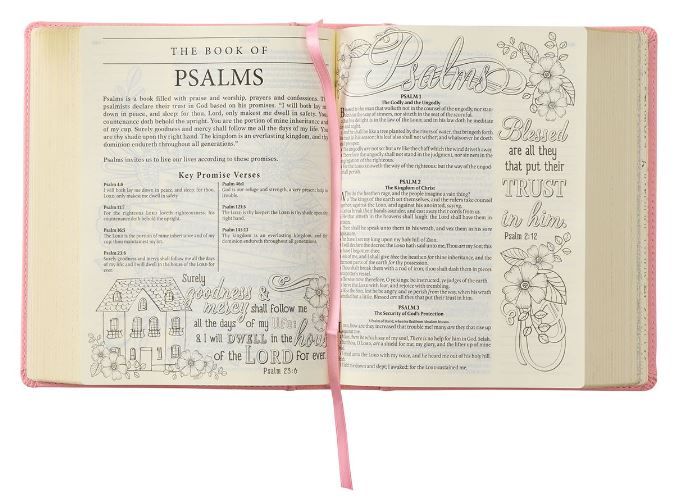 THE BOOK OF
PSALMS
Psalms is a book filled with praise and worship, prayers and confessions.
psalmists declare their trust in God based on his promises. "I will both lay
down in peace, and sleep: for thou, Lord, only makest me dwell in safety. You
countenance doth behold the upright. You are the portion of mine inheritance and
of my cup. Surely goodness and mercy shall follow me all the days of my life.
thy shade upon thy right hand. The kingdom is an everlasting kingdom, and
dominion endureth throughout all generations."
Psalms invites us to live our lives according to these promises.
Key Promise Verses
Psalm 4:8
I will both lay me down in peace, and sleep: for thou,
LORD, only makest me dwell in safety.
Psalm 11:7
For the righteous LORD loveth righteousness; his
countenance doth behold the upright.
Psalm 16:5
The LORD is the portion of mine inheritance and of my
cup: thou maintainest my lot.
Psalm 23:6
Surely goodness and mercy shall follow me all the days
of my life: and I will dwell in the house of the LORD for
ever.
Psalm 46:1
God is our refuge and strength, a very present help in
trouble.
Psalm 121:5
The LORD is thy keeper: the LORD is thy shade upon thy
right hand.
Psalm 145:13
Thy kingdom is an everlasting kingdom, and thy
dominion endureth throughout all generations.
Surely
goodness &
mercy shall follow me
all the days of my life:
& I will DWELL in the house
of the LORD For ever.
Psalm 23:6
Psalms
PSALM 1
The Godly and the Ungodly
is the man that walketh not in the counsel of the ungodly, nor
in the way of sinners, nor sitteth in the seat of the scornful.
his delight is in the law of the LORD; and in his law doth he meditate
and night.
he shall be like a tree planted by the rivers of water, that bringeth forth
in his season; his leaf also shall not wither; and whatsoever he doeth
The ungodly are not so: but are like the chaff which the wind driveth away.
Therefore the ungodly shall not stand in the judgment, nor sinners in the
congregation of the righteous.
For the LORD knoweth the way of the righteous: but the way of the ungodly
shall perish.
PSALM 2
The Kingdom of Christ
do the heathen rage, and the people imagine a vain thing?
The kings of the earth set themselves, and the rulers take counsel
against the LORD, and against his anointed, saying,
us break their bands asunder, and cast away their cords from us.
that sitteth in the heavens shall laugh: the Lord shall have them in
Then shall he speak unto them in his wrath, and vex them in his sore
have I set my king upon my holy hill of Zion.
I will declare the decree: the LORD hath said unto me, Thou art my Son; this
of me, and I shall give thee the heathen for thine inheritance, and the
uttermost parts of the earth for thy possession.
Thou shalt break them with a rod of iron; thou shalt dash them in pieces
like a potter's vessel.
wise now therefore, O ye kings: be instructed, ye judges of the earth.
the LORD with fear, and rejoice with trembling.
the Son, lest he be angry, and ye perish from the way, when his wrath
kindled but a little. Blessed are all they that put their trust in him.
PSALM 3
The Security of God's Protection
A Psalm of David, when he fled from Absalom his son.
how are they increased that trouble me! many are they that rise up
against me.
Many there be which say of my soul, There is no help for him in God. Selah.
thou, O LORD, art a shield for me; my glory, and the lifter up of mine
I cried unto the LORD with my voice, and he heard me out of his holy hill.
I laid me down and slept; I awaked; for the LORD sustained me.
Blessed
are all they
that put their
TRUST
in him.
Psalm 2:12